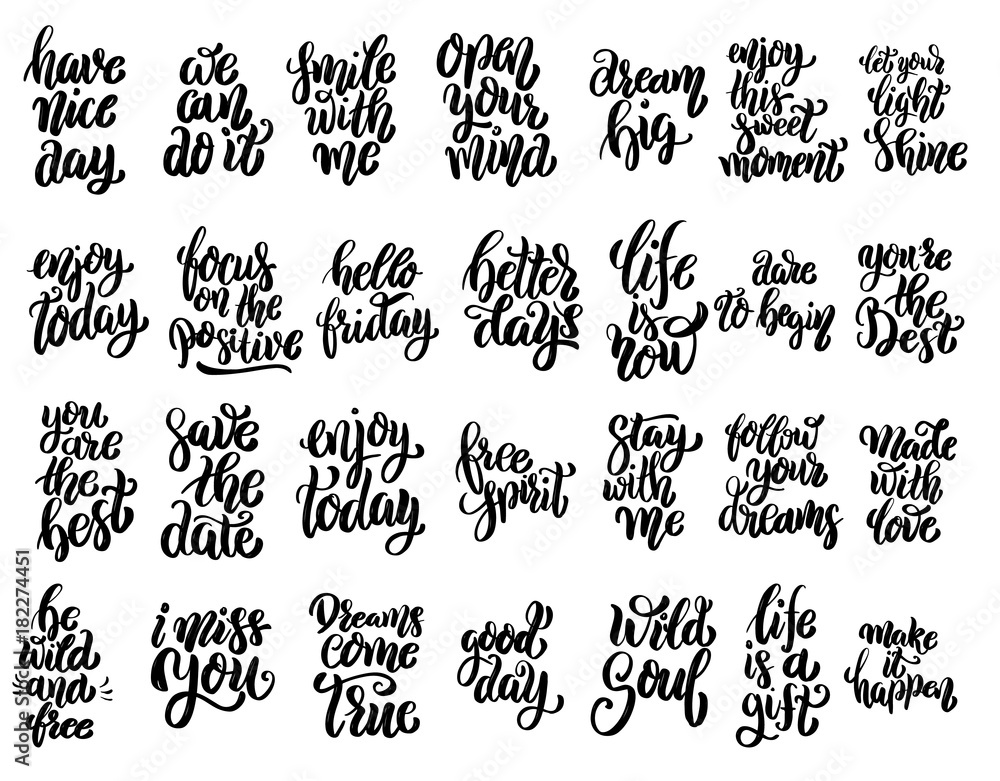 have
nice
day
we
can
do it
smile
with
me
open
your
mind
dream
big
enjoy
this
sweet
moment
let your
light
shine
enjoy
today
focus
on the
positive
hello
friday
better
days
life
is
now
dare
to begin
you're
the
Best
you
are
the
best
save
the
date
enjoy
today
free
spirit
stay
with
me
follow
your
dreams
made
with
love
be
wild
and
free
i miss
you
Dreams
come
True
good
day
Wild
Soul
life
is a
gift
make
it
happen
Adobe Stock | #182274451